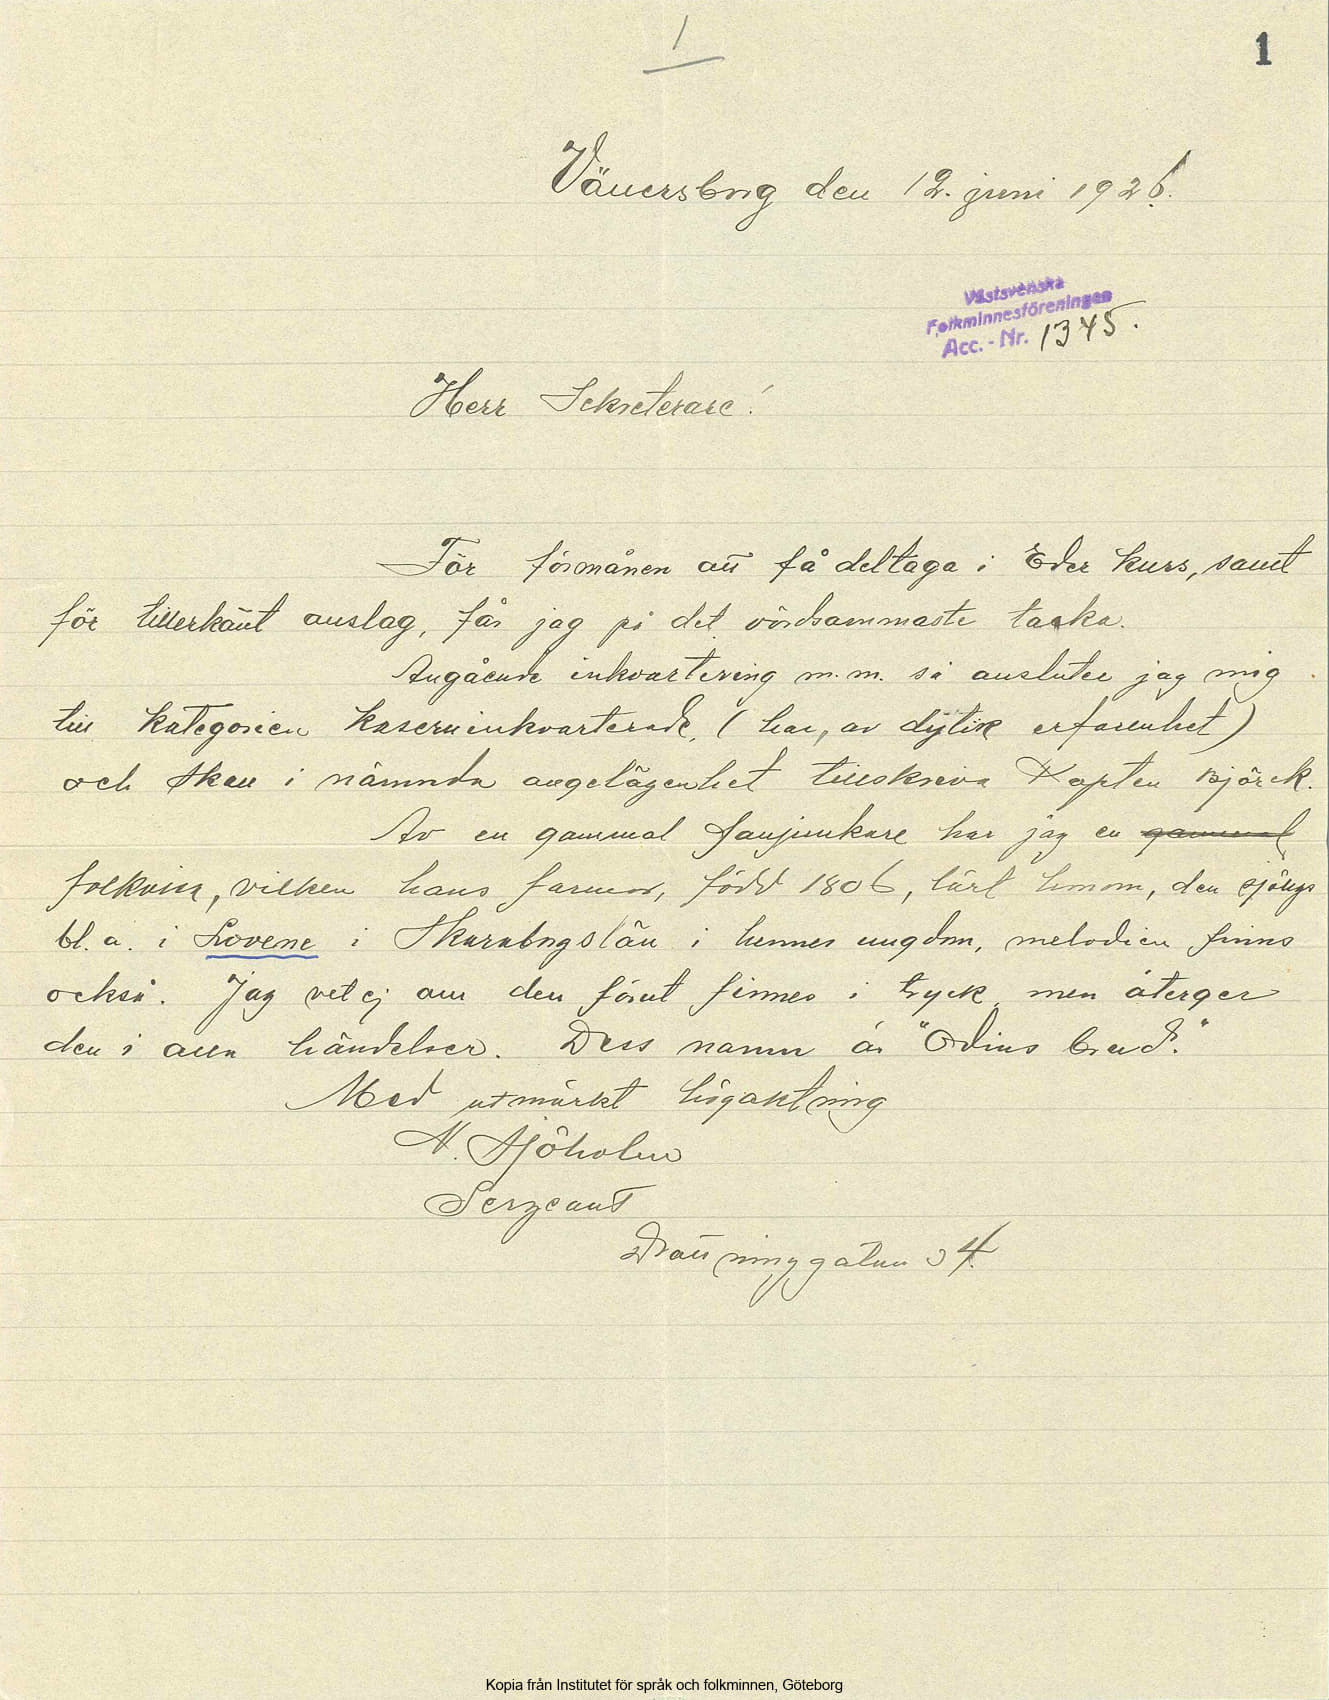 1
1
Vänersborg den 12. juni 1926.
Västsvenska
Folkminnesföreningen
Acc. - Nr. 1345.
Herr Sekreterare!
För förmånen att få deltaga i Eder kurs, samt
för tillerkänt anslag, får jag på det vördsammaste tacka.
Angående inkvartering m.m. så ansluter jag mig
till kategorien kaserninkvarterade, (har, av dylik erfarenhet)
och skall i nämnda angelägenhet tillskriva Kapten Björck.
Av en gammal fanjunkare har jag en gammal
folkvisa, vilken hans farmor, född 1806, lärt honom, den sjöngs
bl. a. i Lovene i Skaraborgs län i hennes ungdom, melodien finns
också. Jag vet ej om den förut finnes i tryck, men återger
den i alla händelser. Dess namn är "Odins brud".
Med utmärkt högaktning
N. Sjöholm
Sergeant
Drottninggatan 34.
Kopia från Institutet för språk och folkminnen, Göteborg